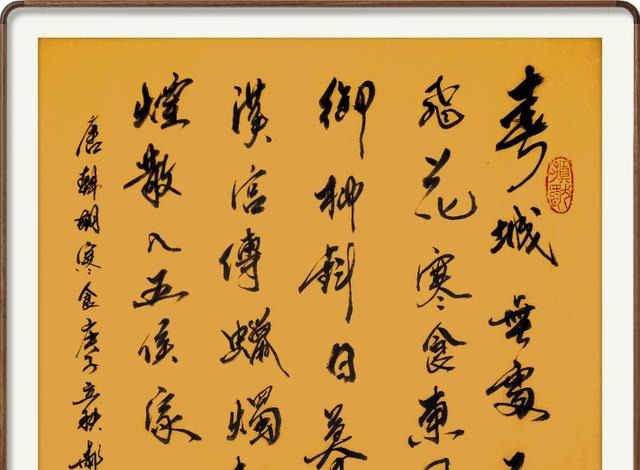 春城無處
飛花寒食東
御柳斜日暮
漢宮傳蠟燭
煙散入五侯家
唐韓翃寒食庚子立秋郝